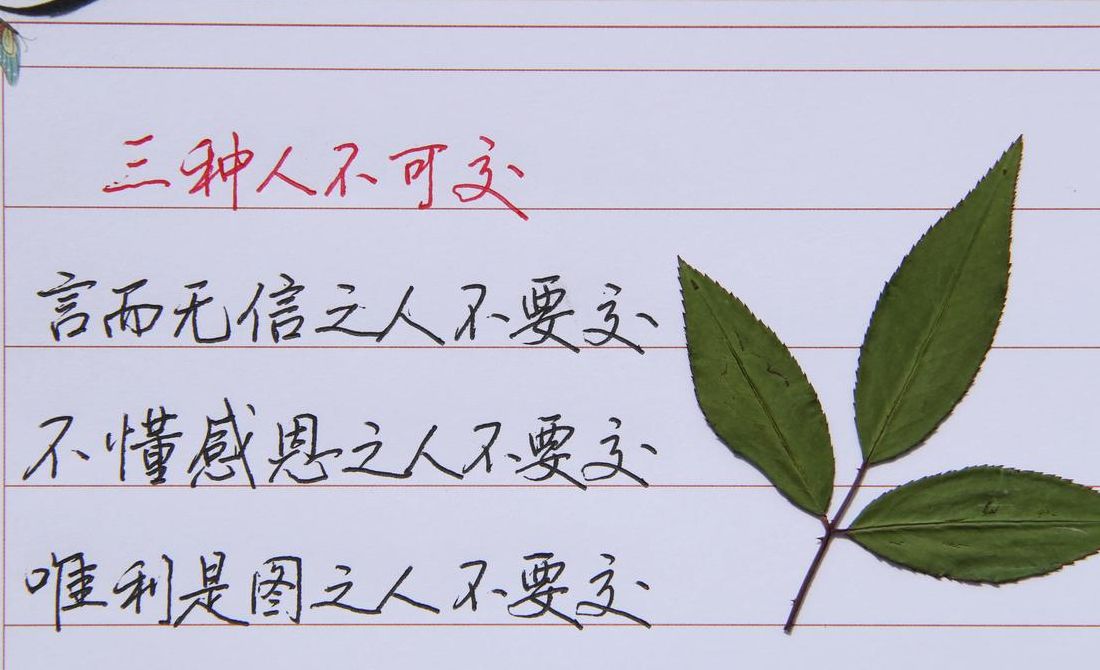 三种人不可交
言而无信之人不要交
不懂感恩之人不要交
唯利是图之人不要交